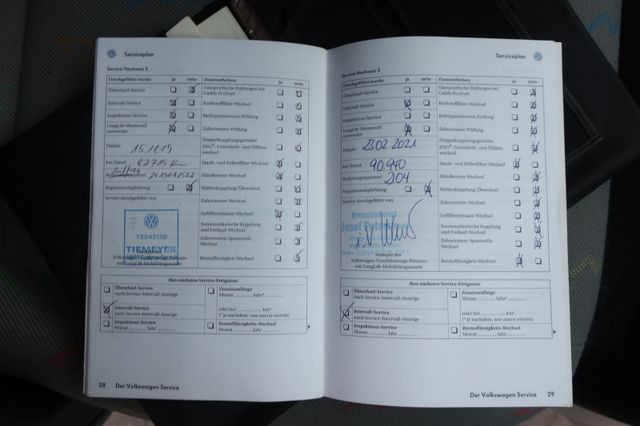 Serviceplan
Service-Nachweis 2
Durchgeführt wurde: ja nein
Ölwechsel-Service
Intervall-Service
Inspektions-Service
LongLife Motorenöl
verwendet
Datum: 15.11.19
km-Stand: 82715 K
Reparaturempfehlung
Service durchgeführt von:
133/43150
TIEMEYER
mit LongLife Mobilitätsgarantie
Zusatzarbeiten: ja nein
Gasspezifische Prüfungen bei
Caddy EcoFuel
Kraftstofffilter-Wechsel
Keilrippenriemen-Prüfung
Zahnriemen-Prüfung
Doppelkupplungsgetriebe
wechsel
Staub- und Pollenfilter-Wechsel
Zündkerzen-Wechsel
Haldexkupplung Ölwechsel
Zahnriemen-Wechsel
Luftfiltereinsatz-Wechsel
Torsionselastische Kupplung
und Freilauf Wechsel
Zahnriemen-Spannrolle
Wechsel
Bremsflüssigkeit-Wechsel
Ihre nächsten Service-Ereignisse
Ölwechsel-Service
nach Service-Intervall-Anzeige
Intervall-Service
nach Service-Intervall-Anzeige
Inspektions-Service
Monat Jahr
Zusatzumfänge
Monat Jahr*
oder bei km*
(* je nachdem, was zuerst eintritt)
Bremsflüssigkeits-Wechsel
Monat Jahr
28 Der Volkswagen Service
Serviceplan
Service-Nachweis 3
Durchgeführt wurde: ja nein
Ölwechsel-Service
Intervall-Service
Inspektions-Service
LongLife Motorenöl
verwendet
Datum: 23.02.2021
km-Stand: 90.940
Rechnungsnummer: 2104
Reparaturempfehlung
Service durchgeführt von:
Josef
Stempel des
Volkswagen Nutzfahrzeuge Partners
mit LongLife Mobilitätsgarantie
Zusatzarbeiten: ja nein
Gasspezifische Prüfungen bei
Caddy EcoFuel
Kraftstofffilter-Wechsel
Keilrippenriemen-Prüfung
Zahnriemen-Prüfung
Doppelkupplungsgetriebe
wechsel
Staub- und Pollenfilter-Wechsel
Zündkerzen-Wechsel
Haldexkupplung Ölwechsel
Zahnriemen-Wechsel
Luftfiltereinsatz-Wechsel
Torsionselastische Kupplung
und Freilauf Wechsel
Zahnriemen-Spannrolle
Wechsel
Bremsflüssigkeit-Wechsel
Ihre nächsten Service-Ereignisse
Ölwechsel-Service
nach Service-Intervall-Anzeige
Intervall-Service
nach Service-Intervall-Anzeige
Inspektions-Service
Monat Jahr
Zusatzumfänge
Monat Jahr*
oder bei km*
(* je nachdem, was zuerst eintritt)
Bremsflüssigkeits-Wechsel
Monat Jahr
Der Volkswagen Service 29